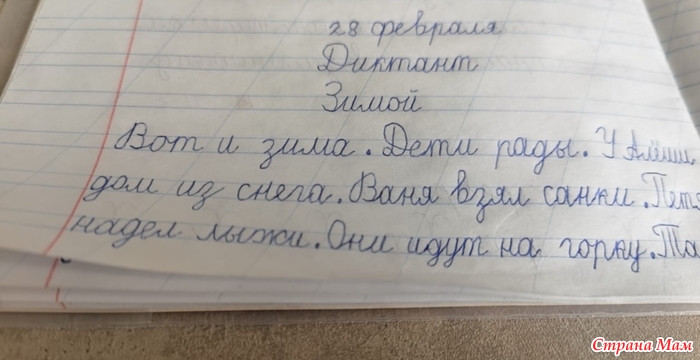 28 февраля
Диктант
Зимой
Вот и зима. Дети рады. У Алёши
дом из снега. Ваня взял санки. Петя
надел лыжи. Они идут на горку. Та
Страна Мам